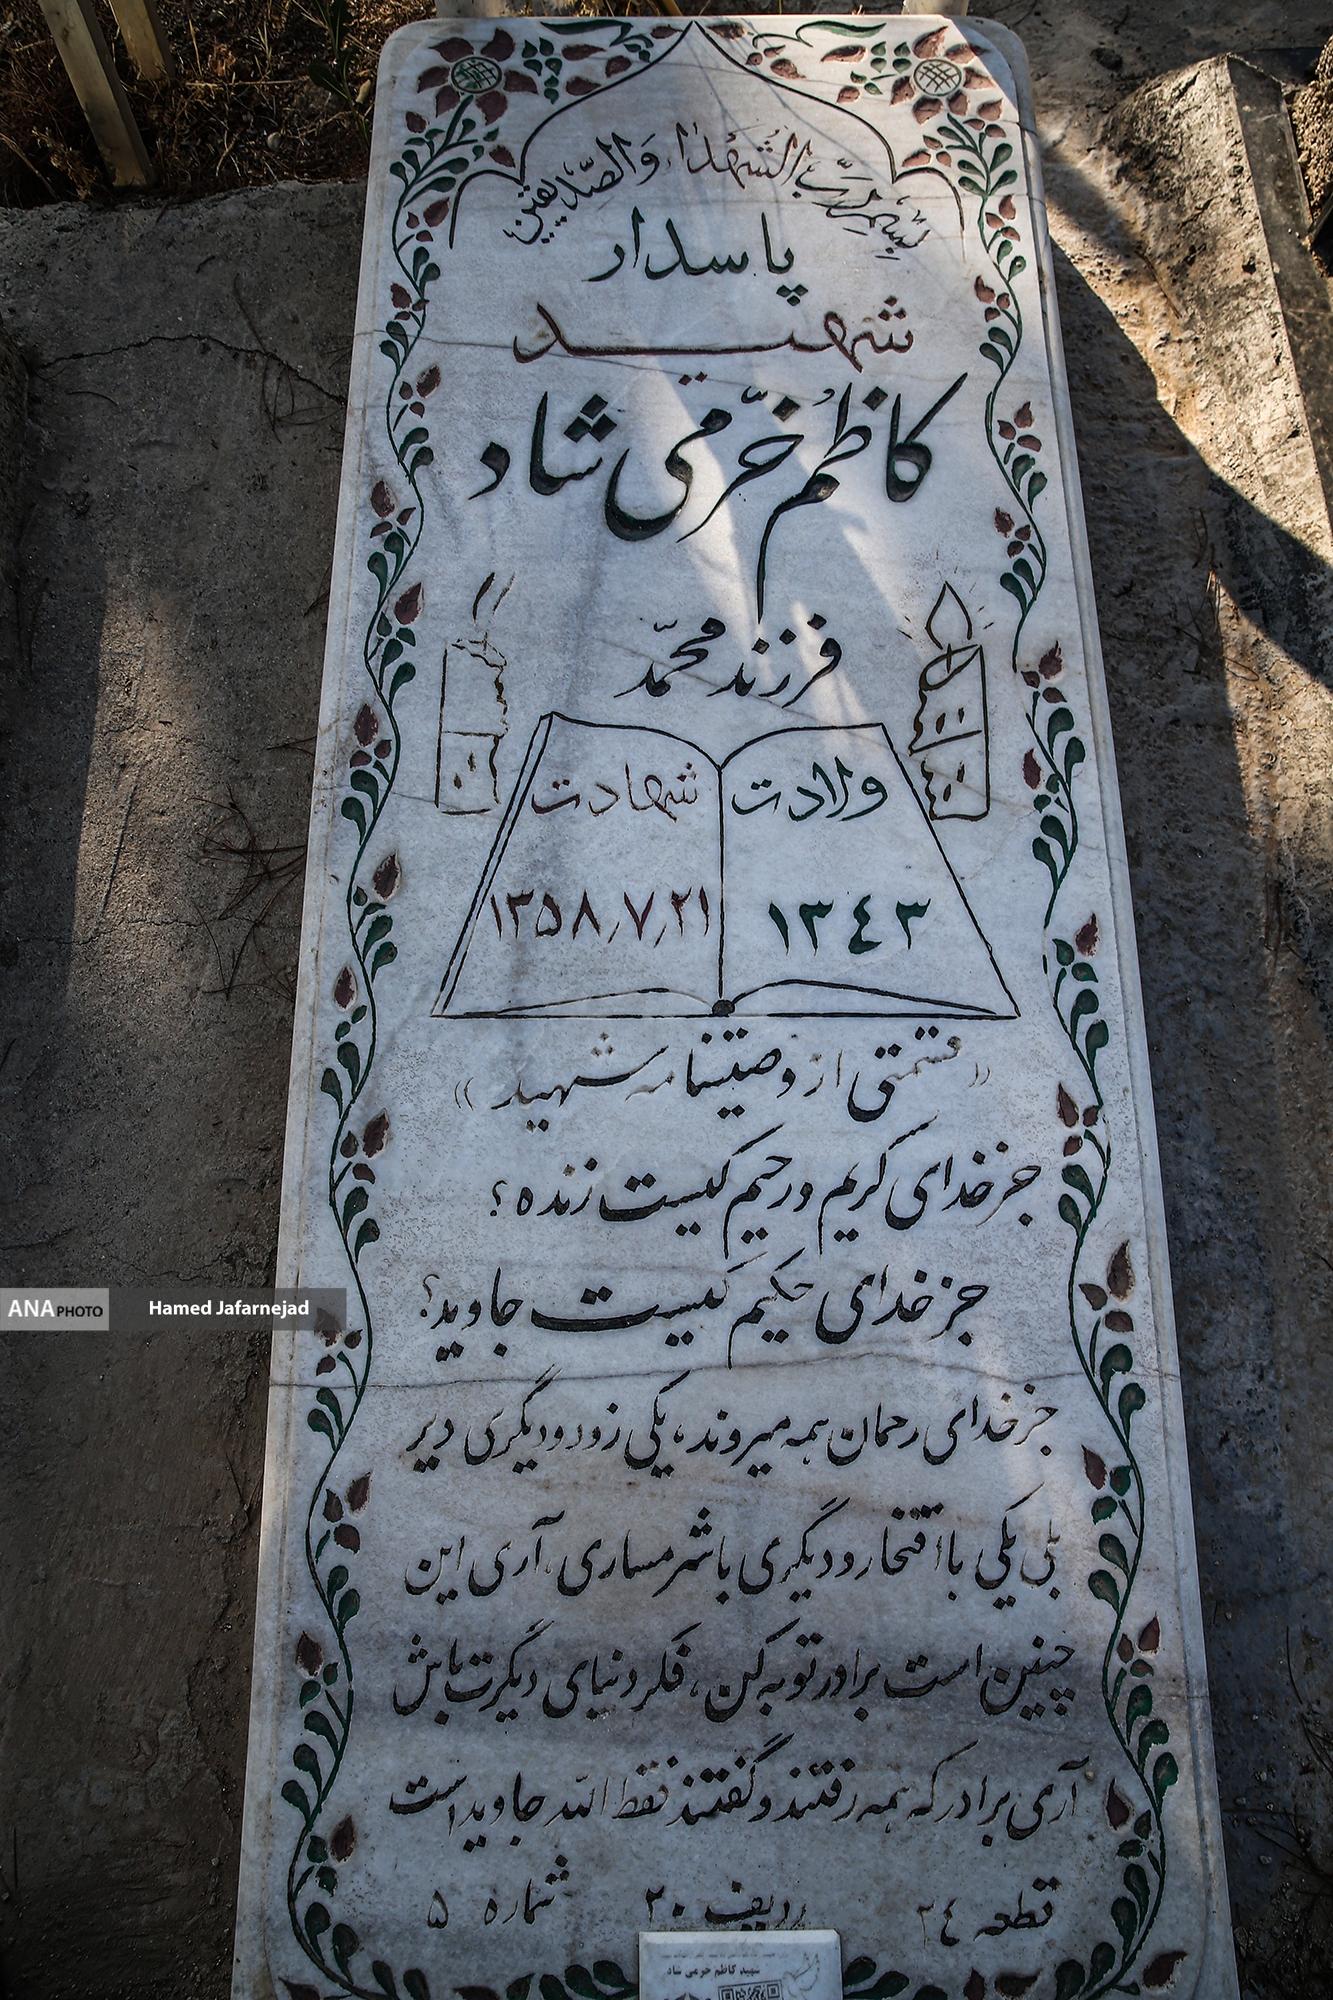 بسم رب الشهداء والصدیقین
پاسدار
شهید
کاظم خرمی شاد
فرزند محمد
ولادت
۱۳٤۳
شهادت
۱۳۵۸٫۷٫۲۱
«قسمتی از وصیتنامه شهید»
جز خدای کریم و رحیم کیست زنده؟
جز خدای حکیم کیست جاوید؟
جز خدای رحمان همه میروند، یکی زود و دیگری دیر
بلی یکی با افتخار و دیگری با شرمساری، آری این
چنین است برادر توبه کن، فکر دنیای دیگرت باش
آری برادر که همه رفتند و گفتند فقط الله جاوید است
قطعه ۲٤ ردیف ۲۰ شماره ۵
شهید کاظم خرمی شاد
ANA PHOTO Hamed Jafarnejad